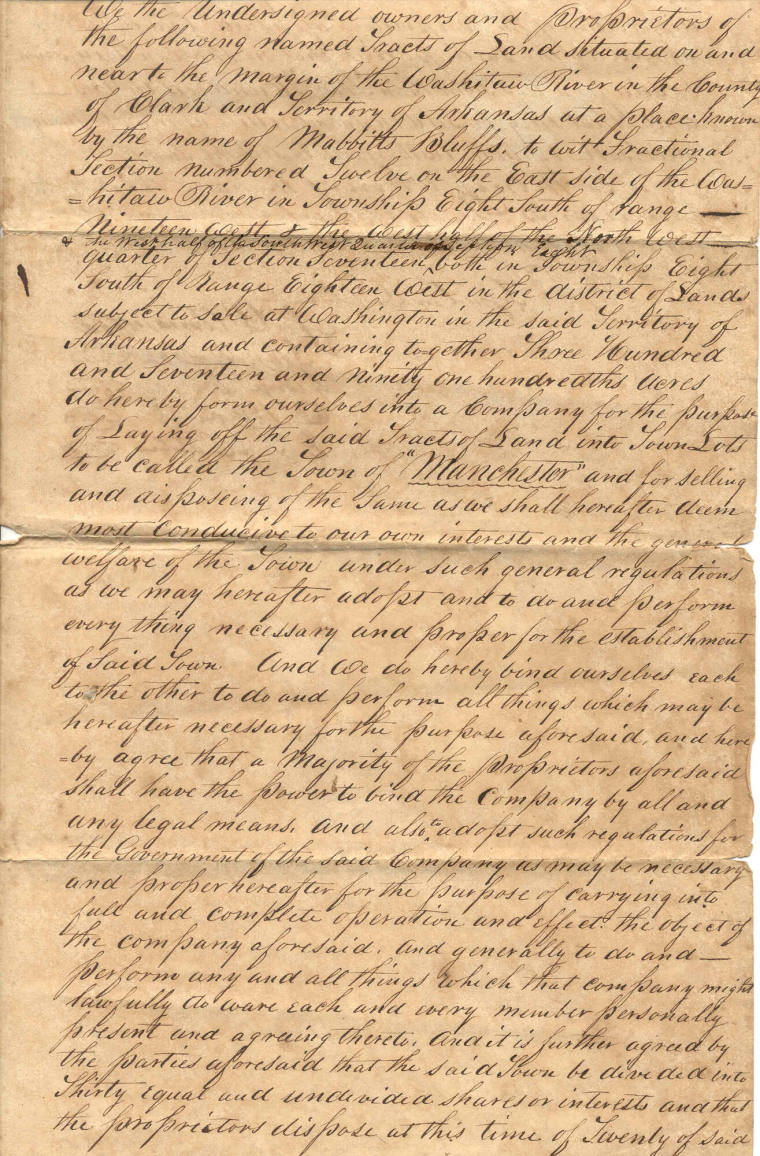 We the Undersigned owners and Proprietors of
the following named Tracts of Land situated on and
near to the margin of the Washitaw River in the County
of Clark and Territory of Arkansas at a place known
by the name of Mabbitts Bluffs. to wit Fractional
Section numbered Twelve on the East side of the Was=
=hitaw River in Township Eight South of range —
Nineteen West & the West half of the North West
& the West half of the South West Quarter of Section Eight
quarter of Section Seventeen, both in Township Eight
South of Range Eighteen West in the district of Lands
subject to sale at Washington in the said Territory of
Arkansas and containing together Three Hundred
and Seventeen and Ninity one hundredths acres
do hereby form ourselves into a Company for the purpose
of Laying off the said Tracts of Land into Town Lots
to be called the Town of "Manchester" and for selling
and disposeing of the Same as we shall hereafter deem
most Conducive to our own interests and the general
welfare of the Town under such general regulations
as we may hereafter adopt and to do and perform
every thing necessary and proper for the establishment
of Said Town And We do hereby bind ourselves each
to the other to do and perform all things which may be
hereafter necessary for the purpose aforesaid, and here
=by agree that a Majority of the Proprietors aforesaid
shall have the power to bind the Company by all and
any legal means. and also to adopt such regulations for
the Government of the said Company as may be necessary
and proper hereafter for the purpose of carrying into
full and complete operation and effect. the object of
the company aforesaid. and generally to do and —
perform any and all things which that company might
lawfully do ware each and every member personally
present and agreeing thereto. And it is further agreed by
the parties aforesaid that the said Town be divided into
Thirty Equal and undivided shares or interests and that
the proprietors dispose at this time of Twenty of said